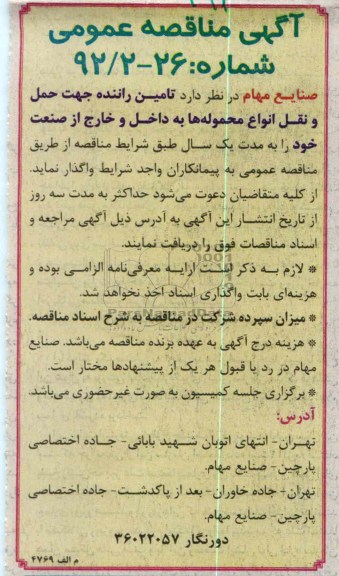 آگهی مناقصه عمومی
شماره: ۲۶-۹۲/۲
صنایع مهام در نظر دارد تامین راننده جهت حمل
و نقل انواع محموله‌ها به داخل و خارج از صنعت
خود را به مدت یک سال طبق شرایط مناقصه از طریق
مناقصه عمومی به پیمانکاران واجد شرایط واگذار نماید.
از کلیه متقاضیان دعوت می‌شود حداکثر به مدت سه روز
از تاریخ انتشار این آگهی به آدرس ذیل آگهی مراجعه و
اسناد مناقصات فوق را دریافت نمایند.
* لازم به ذکر است ارایه معرفی‌نامه الزامی بوده و
هزینه‌ای بابت واگذاری اسناد اخذ نخواهد شد.
* میزان سپرده شرکت در مناقصه به شرح اسناد مناقصه.
* هزینه درج آگهی به عهده برنده مناقصه می‌باشد. صنایع
مهام در رد یا قبول هر یک از پیشنهادها مختار است.
* برگزاری جلسه کمیسیون به صورت غیرحضوری می‌باشد.
آدرس:
تهران- انتهای اتوبان شهید بابائی- جاده اختصاصی
پارچین- صنایع مهام.
تهران- جاده خاوران- بعد از پاکدشت- جاده اختصاصی
پارچین- صنایع مهام.
دورنگار ۳۶۰۲۲۰۵۷
م الف ۴۷۶۹